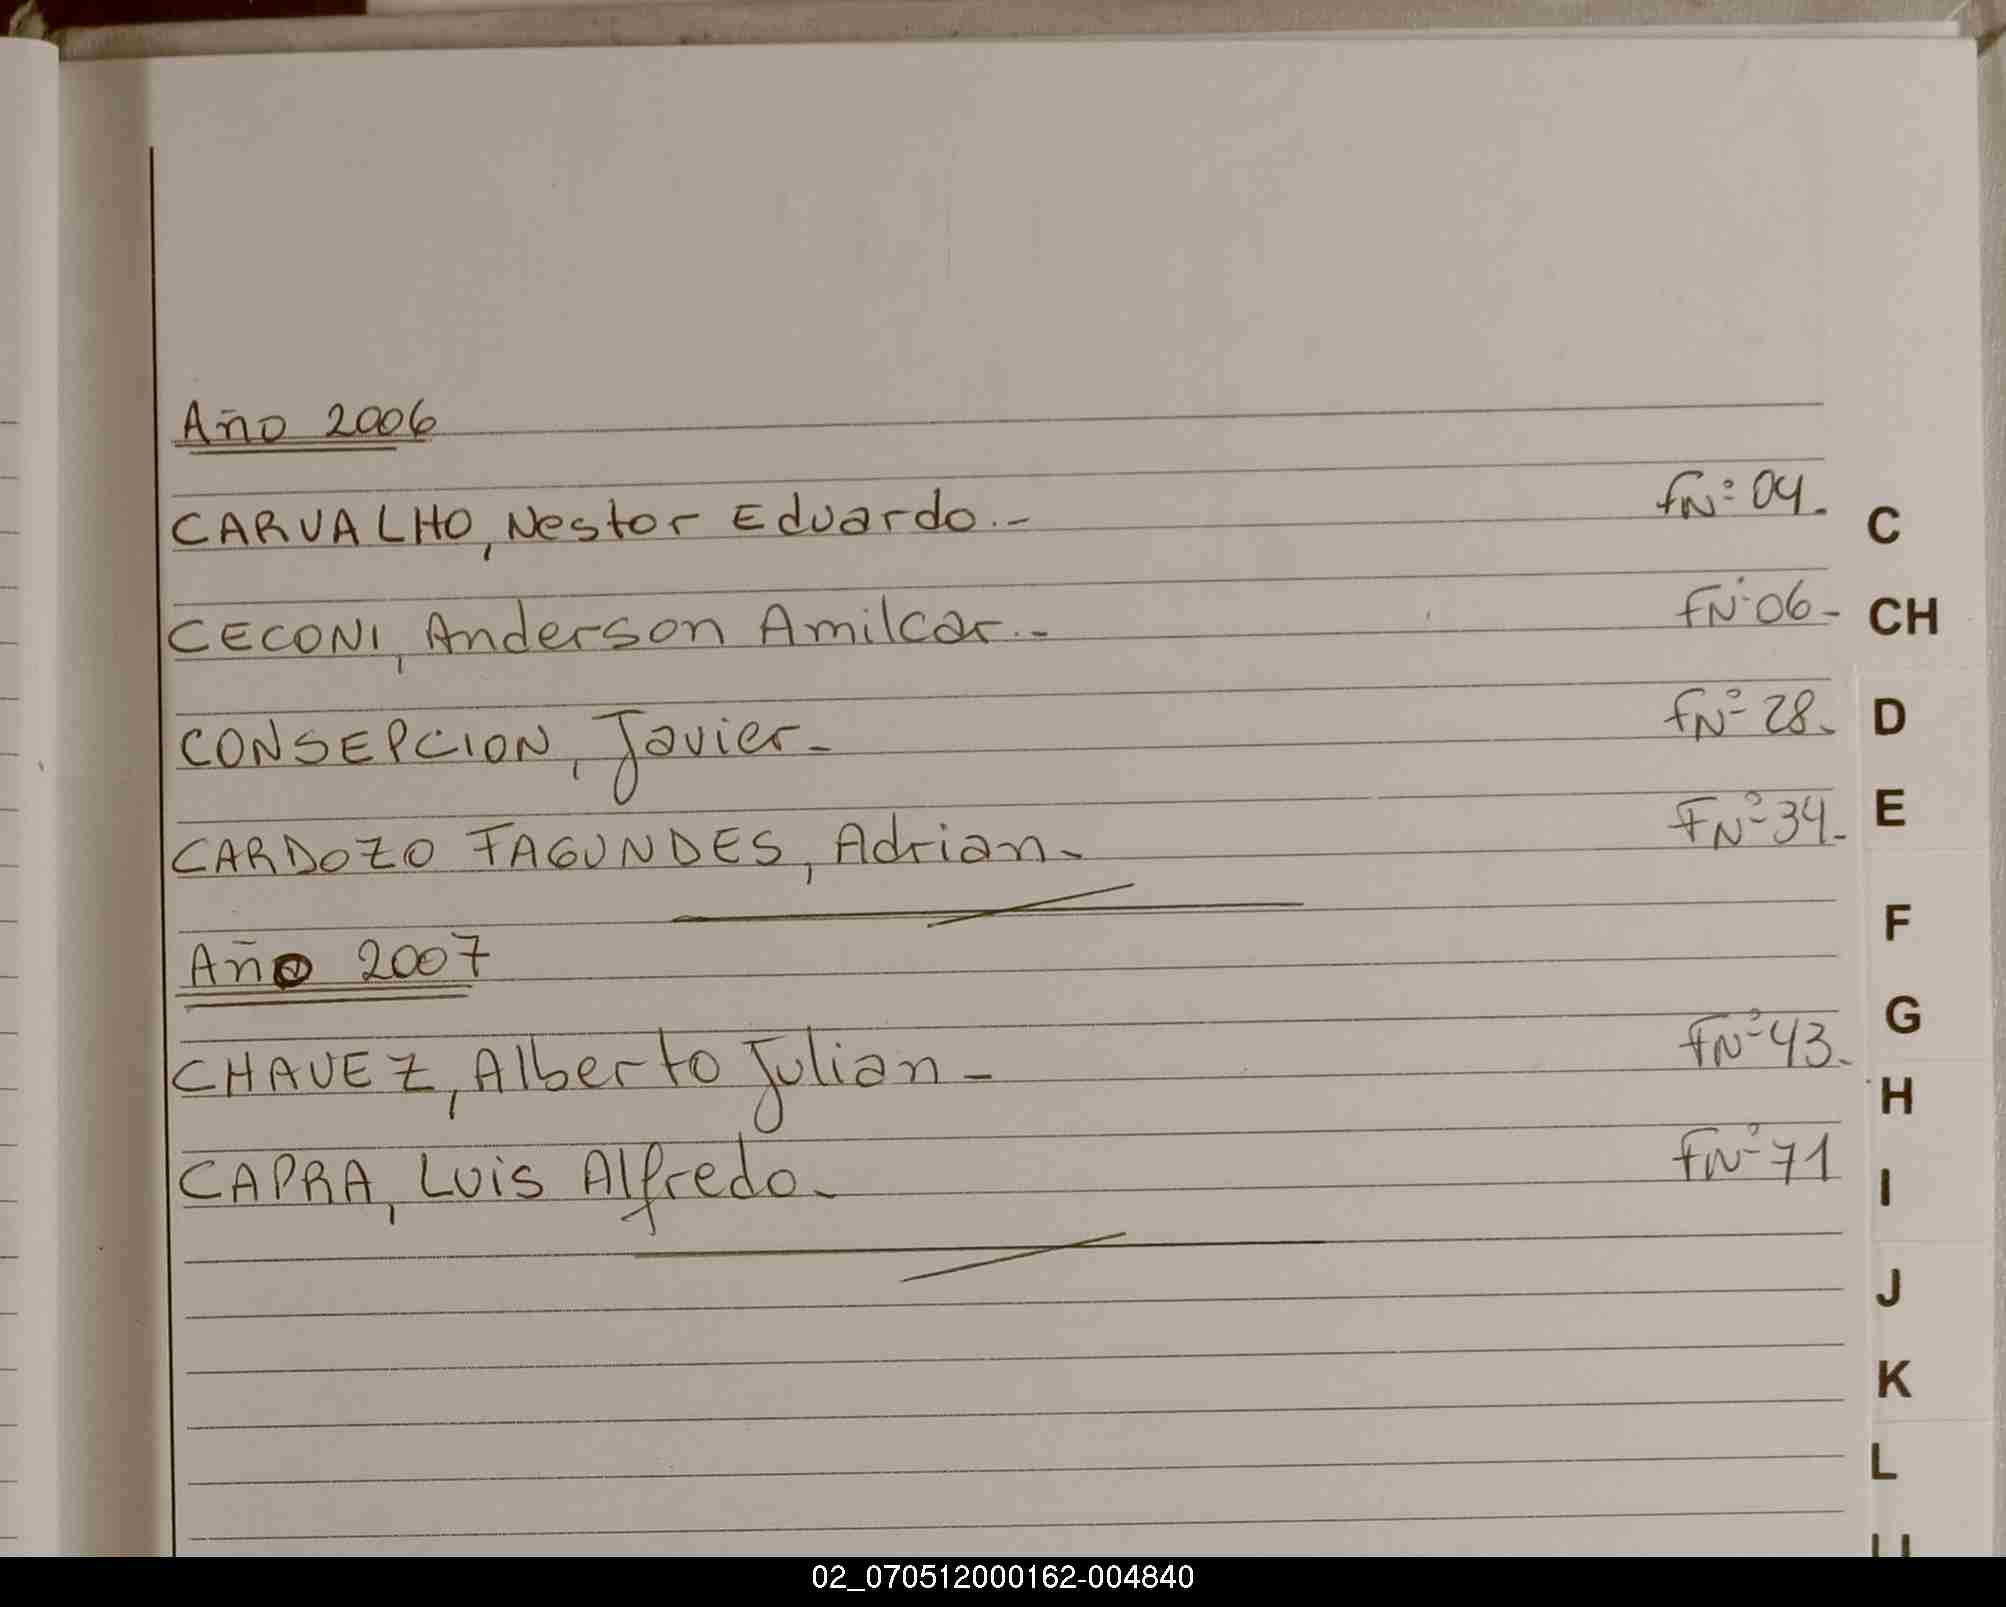 Año 2006
CARVALHO, Nestor Eduardo.- fNº 04.
CECONI, Anderson Amilcar.- FNº 06-
CONSEPCION, Javier- fNº 28.
CARDOZO FAGUNDES, Adrian- FNº 34-
Año 2007
CHAVEZ, Alberto Julian- FNº 43-
CAPRA, Luis Alfredo- FNº 71
C
CH
D
E
F
G
H
I
J
K
L
02_070512000162-004840